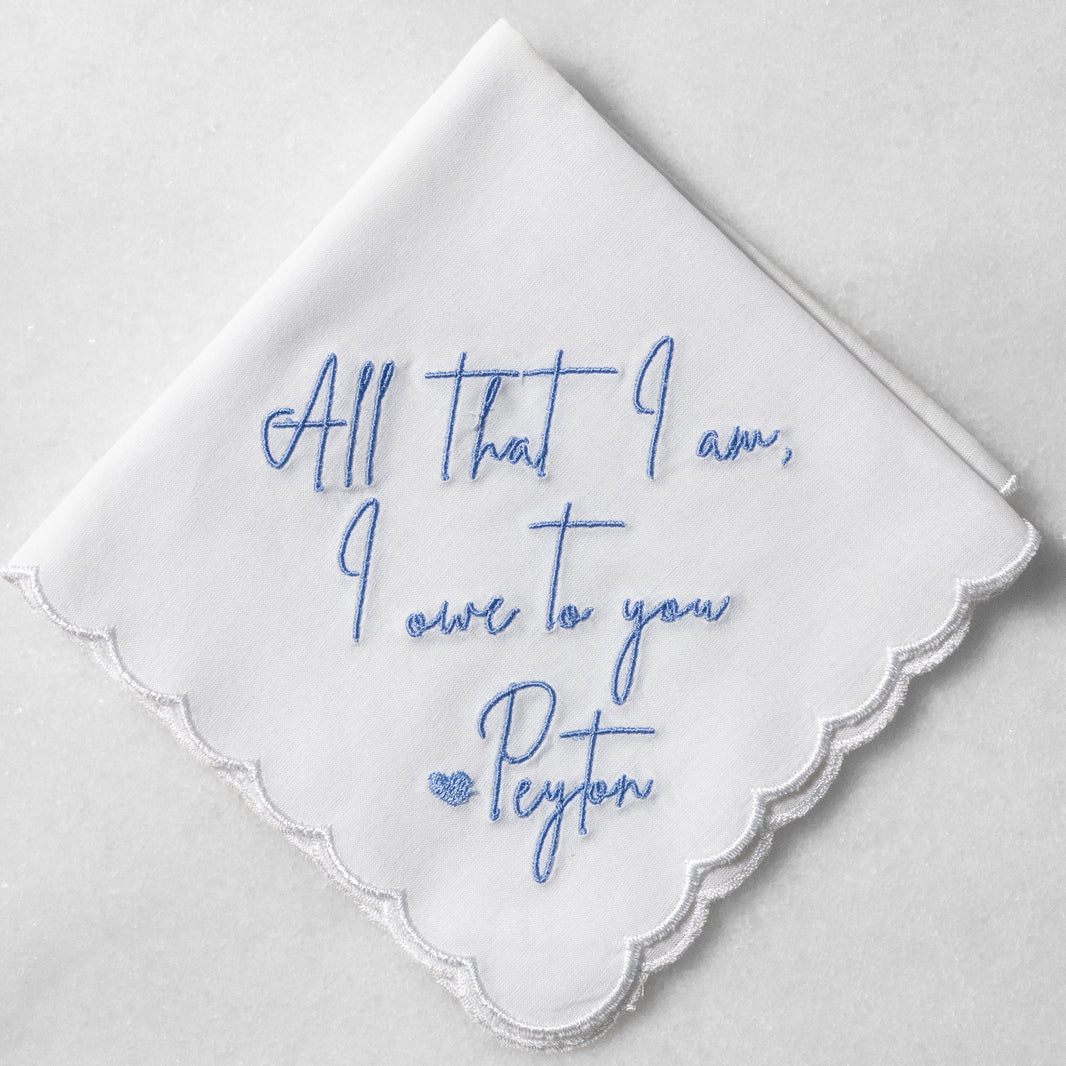 All that I am,
I owe to you
♥Peyton